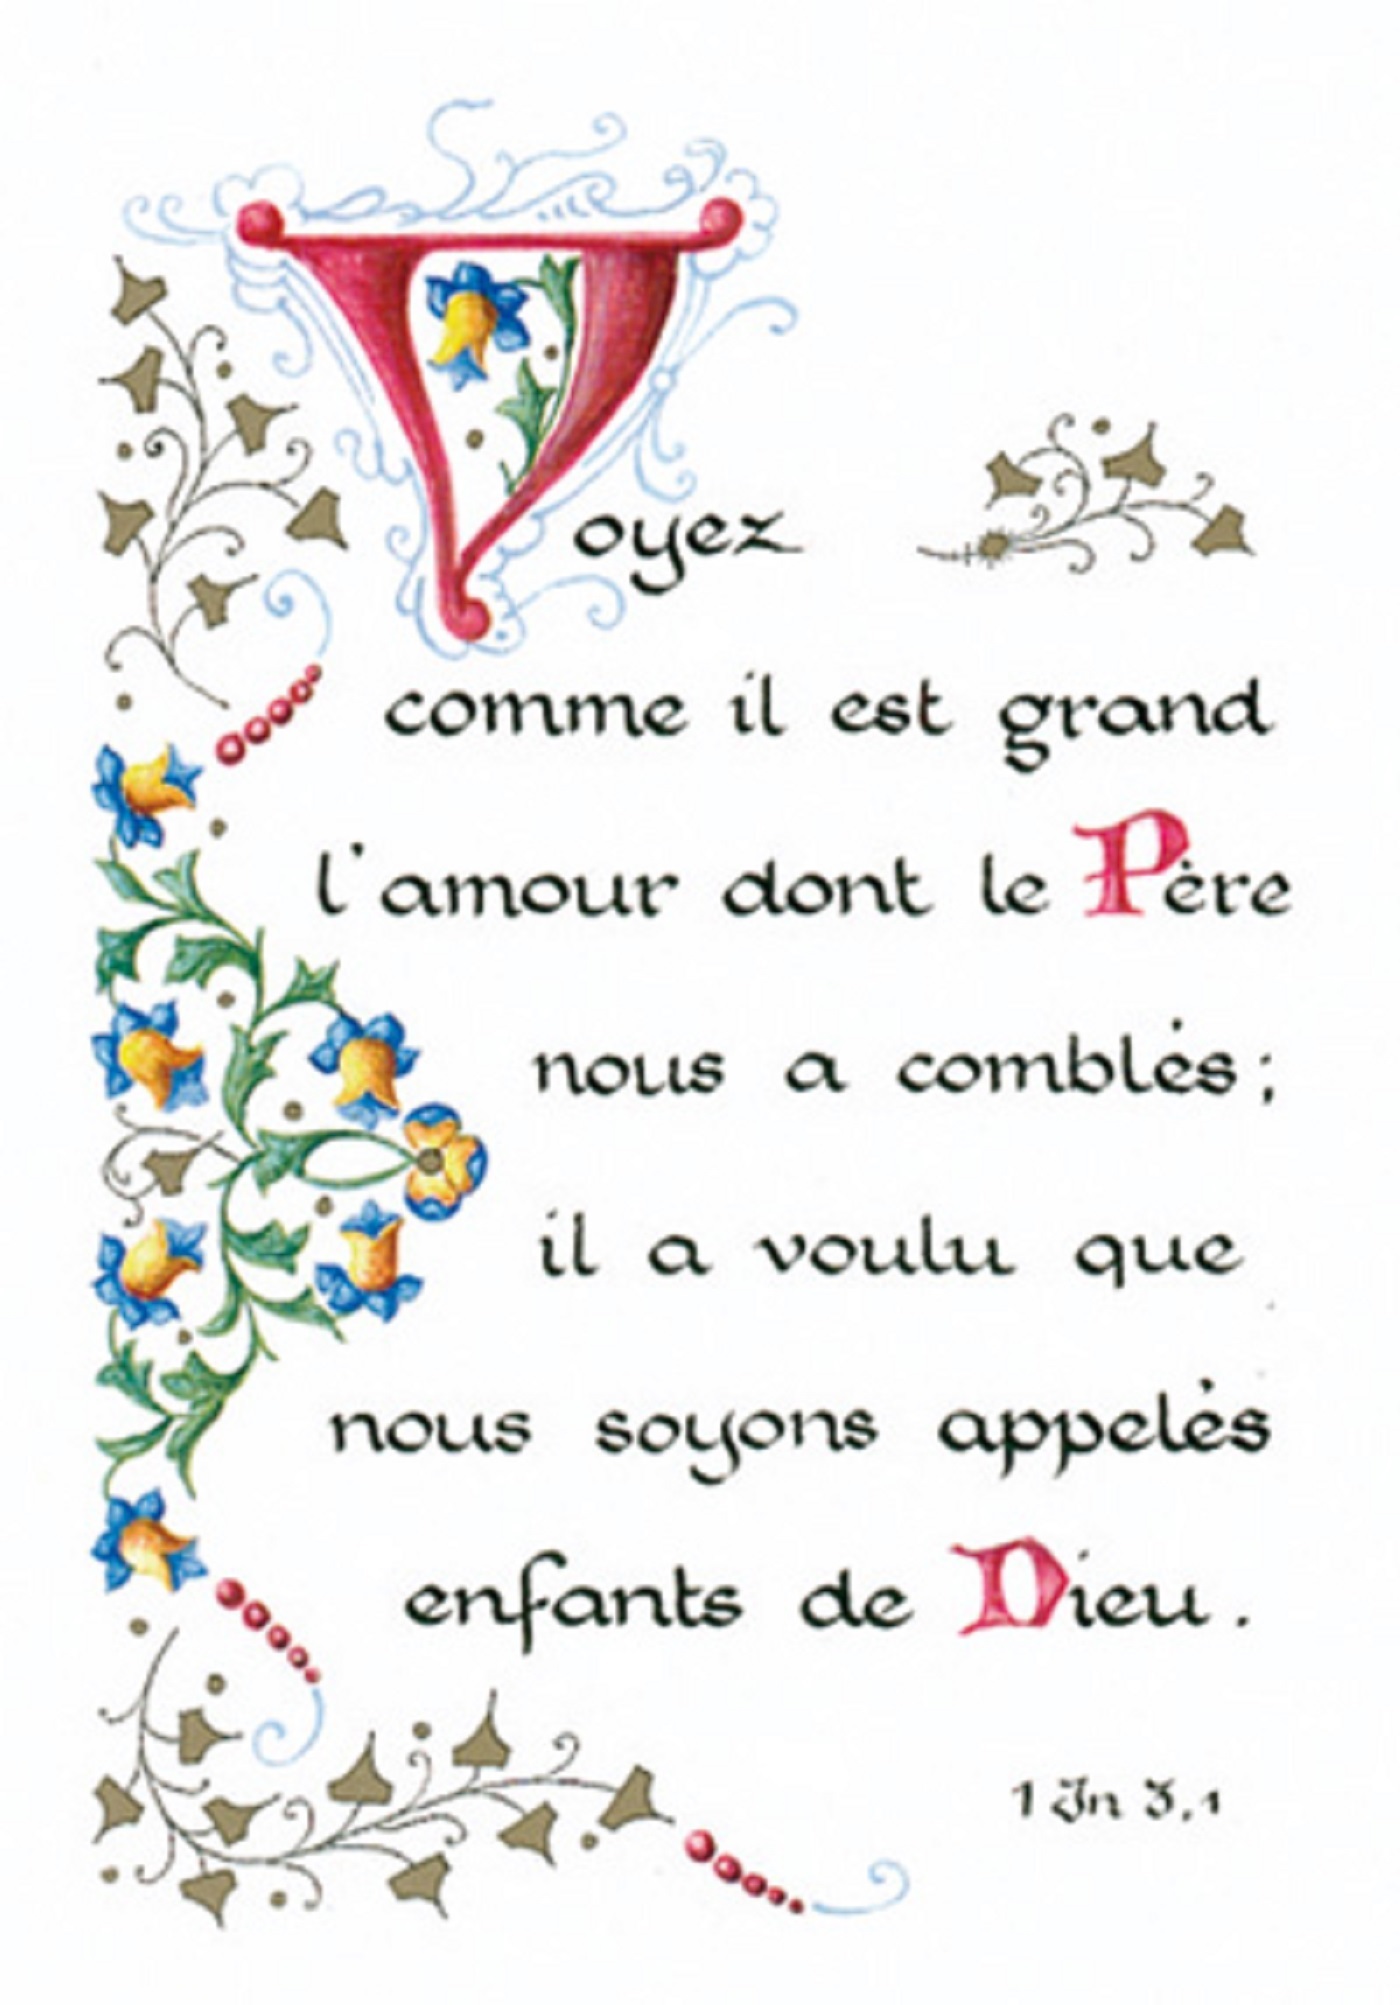 Voyez
comme il est grand
l'amour dont le Père
nous a comblés ;
il a voulu que
nous soyons appelés
enfants de Dieu .
1 Jn 3,1